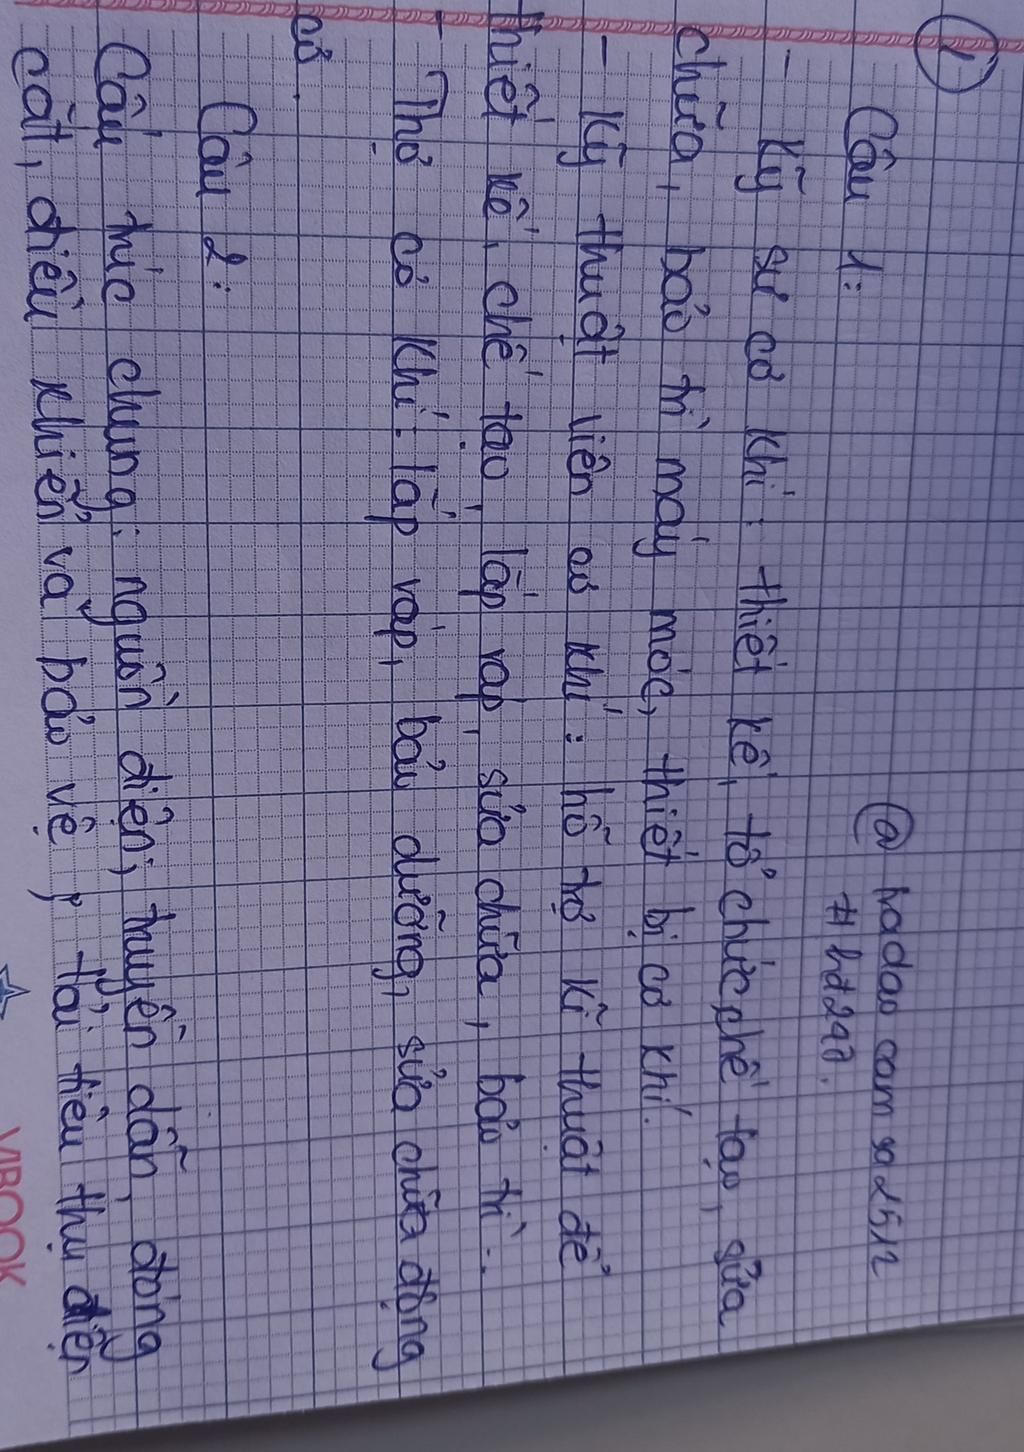 ①
@ hadaocamsa2512
# hd297.
Câu 1:
- Kỹ sư cơ khí: thiết kế, tổ chức chế tạo, sửa
chữa, bảo trì máy móc, thiết bị cơ khí.
- Kỹ thuật viên cơ khí: hỗ trợ kĩ thuật để
thiết kế, chế tạo, lắp ráp, sửa chữa, bảo trì.
- Thợ cơ khí: lắp ráp, bảo dưỡng, sửa chữa động
cơ.
Câu 2:
Cấu trúc chung: nguồn điện; truyền dẫn, đóng
cắt, điều khiển và bảo vệ; tải tiêu thụ điện
VIBOOK